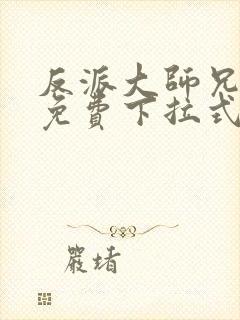 反派大師兄
免費下拉式
嚴堵